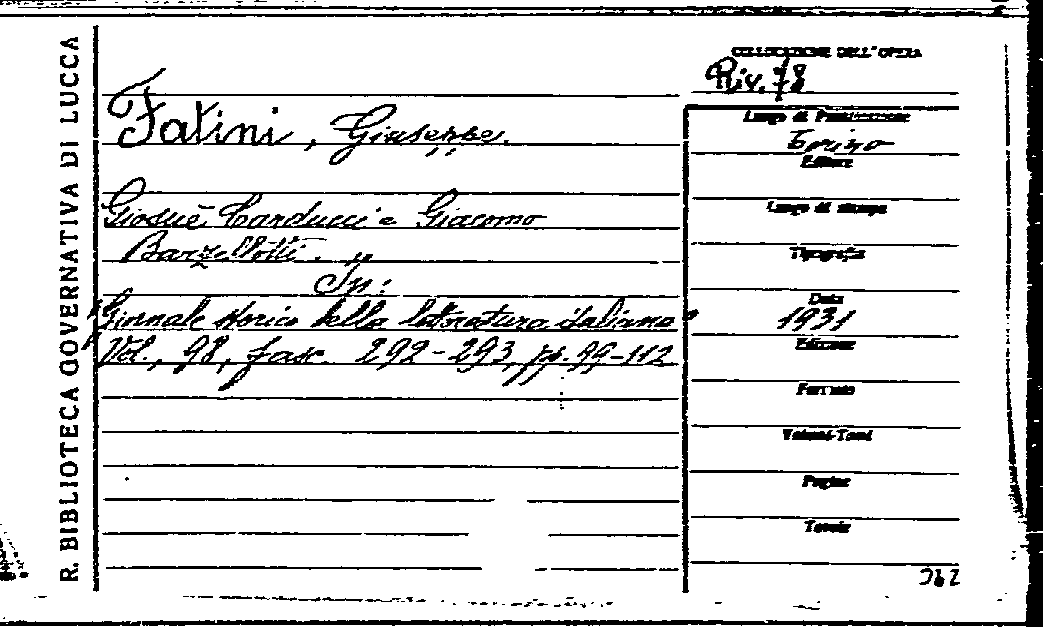 R. BIBLIOTECA GOVERNATIVA DI LUCCA
Fatini, Giuseppe.
Giosuè Carducci e Giacomo
Barzellotti.
In:
"Giornale storico della letteratura italiana"
Vol., 98, fasc. 292-293, pp. 99-112
COLLOCAZIONE DELL'OPERA
Riv. 78
Luogo di Pubblicazione
Torino
Editore
Luogo di stampa
Tipografia
Data
1931
Edizione
Formato
Volumi-Tomi
Pagine
Tavole